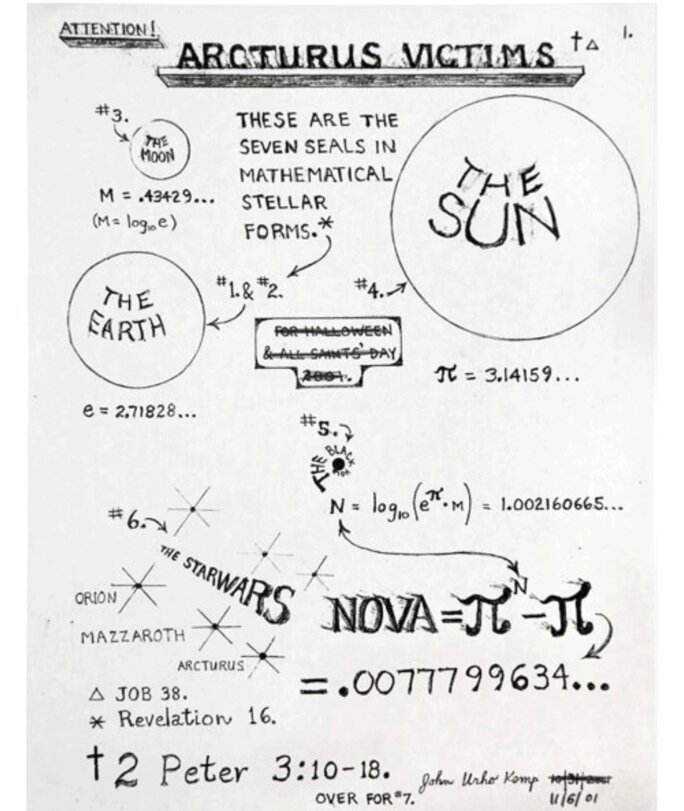 ATTENTION!
ARCTURUS VICTIMS † △
1.
#3.
THE
MOON
M = .43429...
(M = log₁₀ e)
THESE ARE THE
SEVEN SEALS IN
MATHEMATICAL
STELLAR
FORMS.*
THE
SUN
#1. & #2.
#4.
THE
EARTH
FOR HALLOWEEN
& ALL SAINTS' DAY
2001.
π = 3.14159...
e = 2.71828...
#5.
THE BLACK
N = log₁₀(e^π·M) = 1.002160665...
#6.
THE STARWARS
ORION
MAZZAROTH
ARCTURUS
NOVA = π^N − π
= .0077799634...
△ JOB 38.
* Revelation 16.
† 2 Peter 3:10-18.
John Urho Kemp 10/31/2001
11/5/01
OVER FOR #7.